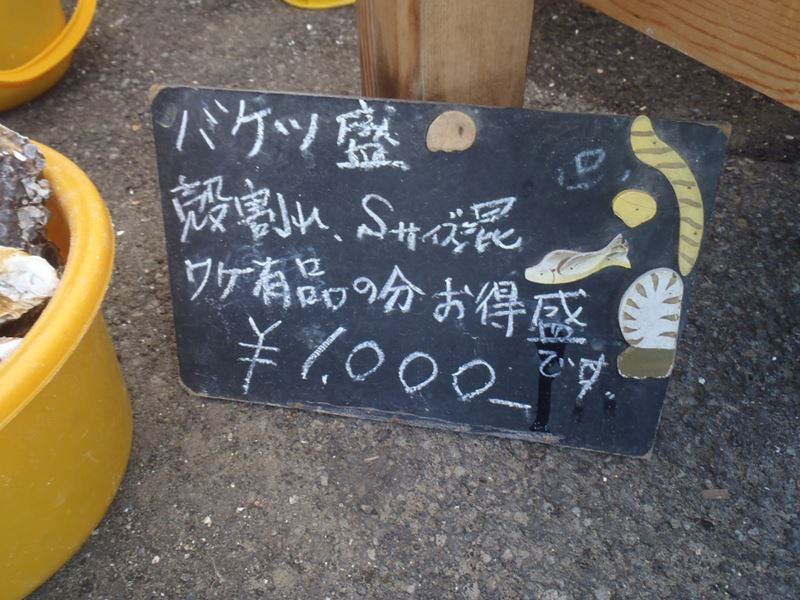 バケツ盛
殻割れ、Sサイズ混
ワケ有品の分お得盛
です。
¥1,000-